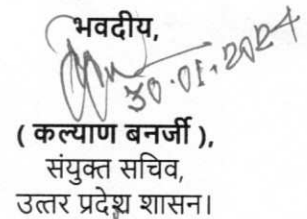 भवदीय,
30.01.2024
( कल्याण बनर्जी ),
संयुक्त सचिव,
उत्तर प्रदेश शासन।